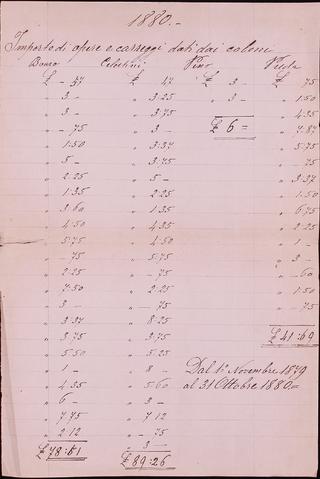 1880.-
Importo di opere e carreggi dati dai coloni
£ - 57 £ 47 £ 3 - £ 75
" 3 - " 3.25 " 3 - " 1.50
" 3 - " 3.75 " 4.35
" - 75 " 3 - £ 6 = " 7.87
" 1.50 " 3.37 " 5.75
" 5 - " 3.75 " 75
" 2.25 " 5 - " 3.37
" 1.35 " 2.25 " 1.50
" 3.60 " 1.35 " 6.75
" 4.50 " 4.35 " 2.25
" 5.75 " 4.50 " 1 -
" - 75 " 5.75 " 3 -
" 2.25 " - 75 " - 60
" 7.50 " 2.25 " 1.50
" 3 - " - 75 " - 75
" 3.37 " 8.25
" 3.75 " 3.75 £ 41:69
" 5.50 " 5.25
" 1 - " 8 - Dal 1° Novembre 1879
" 4.35 " 5.60 al 31 Ottobre 1880.=
" 6 - " 3 -
" 7.75 " 7.12
" 2.12 " - 75
£ 78:51 " 3 -
£ 89:26